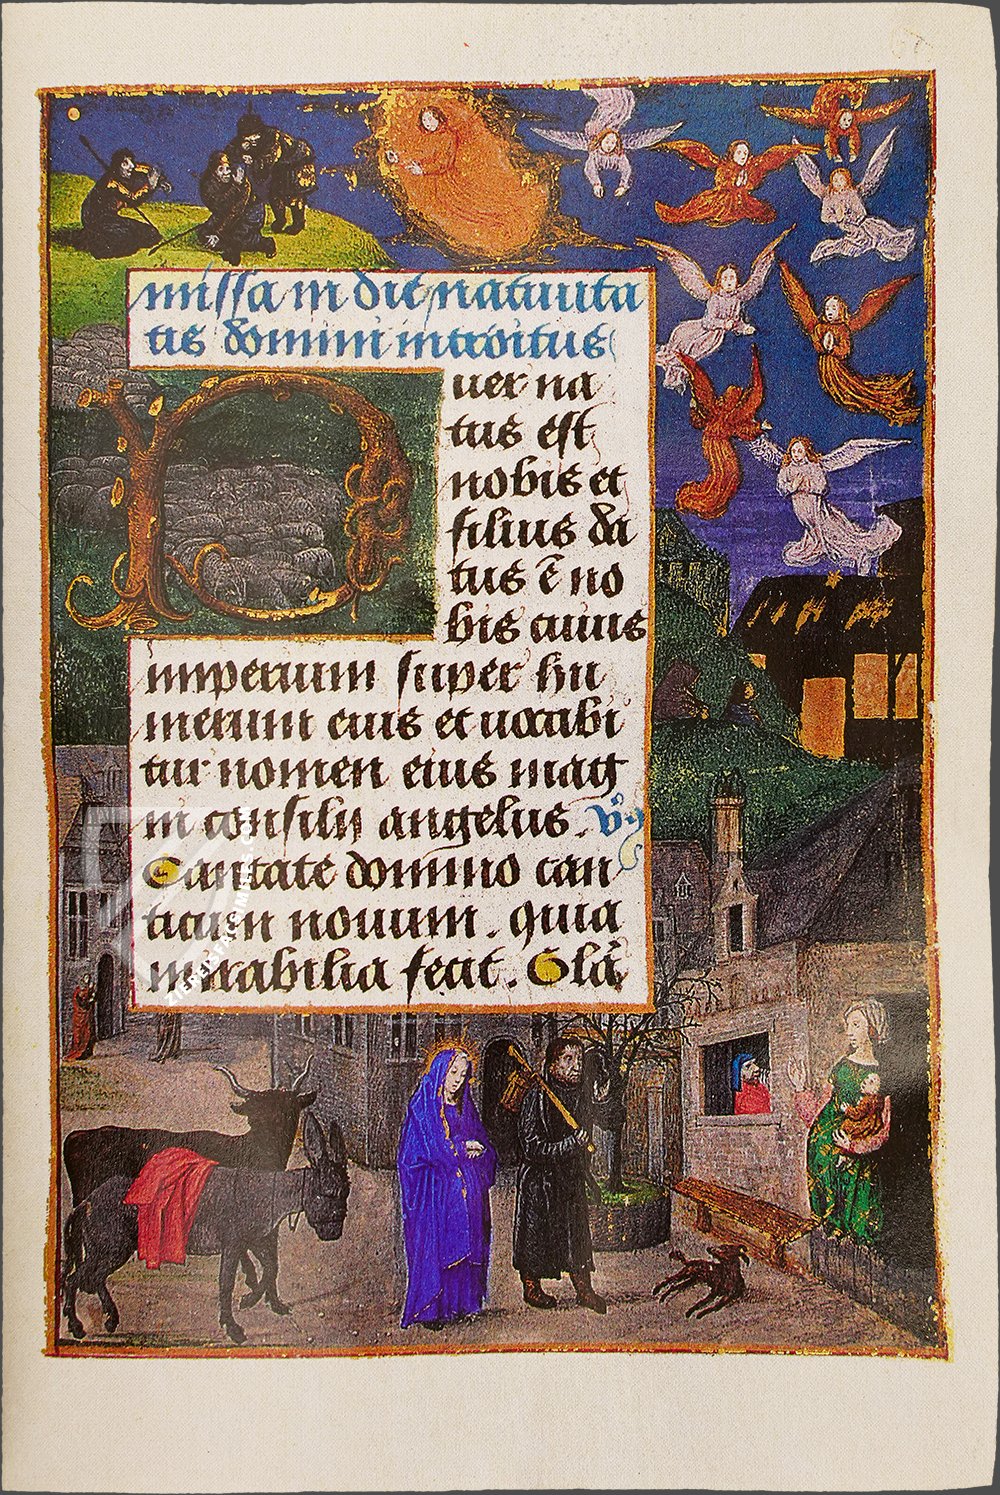 missam in die natiuita
tis domini introitus
Puer na
tus est
nobis et
filius da
tus ē no
bis cuius
imperium super hu
merum eius et uocabi
tur nomen eius mag
ni consilij angelus. v̄s
Cantate domino can
ticum nouum. quia
mirabilia fecit. Glā